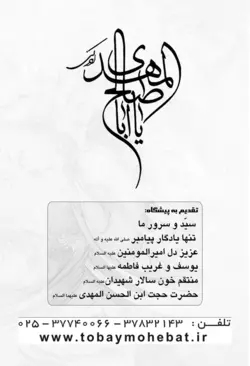 یا اباصالح المهدی ادرکنی
تقدیم به پیشگاه:
سیّد و سرور ما
تنها یادگار پیامبر صلی الله علیه و آله
عزیز دل امیرالمومنین علیه السلام
یوسف و غریب فاطمه علیها السلام
منتقم خون سالار شهیدان علیه السلام
حضرت حجت ابن الحسن المهدی علیهما السلام
تلفـــن : ۳۷۸۳۲۱۴۳ – ۳۷۷۴۰۰۶۶ – ۰۲۵
www.tobaymohebat.ir